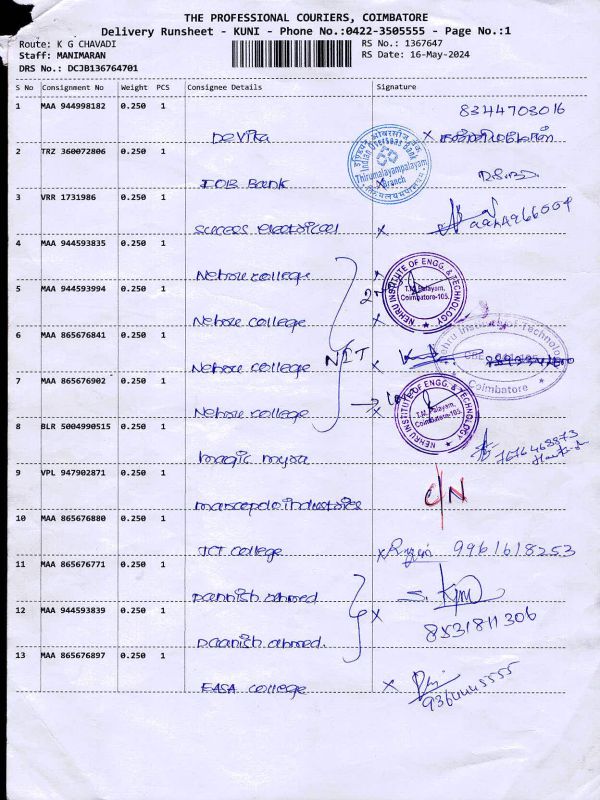 THE PROFESSIONAL COURIERS, COIMBATORE
Delivery Runsheet - KUNI - Phone No.:0422-3505555 - Page No.:1
Route: K G CHAVADI RS No.: 1367647
Staff: MANIMARAN RS Date: 16-May-2024
DRS No.: DCJB136764701
S No Consignment No Weight PCS Consignee Details Signature
1 MAA 944998182 0.250 1 8344703016
Devika x
2 TRZ 360072806 0.250 1
Indian Overseas Bank
Thirumalayampalayam
Branch
IOB Bank
3 VRR 1731986 0.250 1
sucess electrical x
4 MAA 944593835 0.250 1
Nehru college x
5 MAA 944593994 0.250 1
NEHRU INSTITUTE OF ENGG. & TECHNOLOGY
T.M. Palayam,
Coimbatore-105.
Nehru college x
6 MAA 865676841 0.250 1
Nehru Institute of Technology
Coimbatore
Nehru college NIT
7 MAA 865676902 0.250 1
NEHRU INSTITUTE OF ENGG. & TECHNOLOGY
T.M. Palayam,
Coimbatore-105.
Nehru college x
8 BLR 5004990515 0.250 1
magic myna
9 VPL 947902871 0.250 1
C/N
10 MAA 865676880 0.250 1
JCT college x 9961618253
11 MAA 865676771 0.250 1
Dannish ahmed
12 MAA 944593839 0.250 1 x
8531811306
Daanish ahmed.
13 MAA 865676897 0.250 1
EASA college x
9364445555